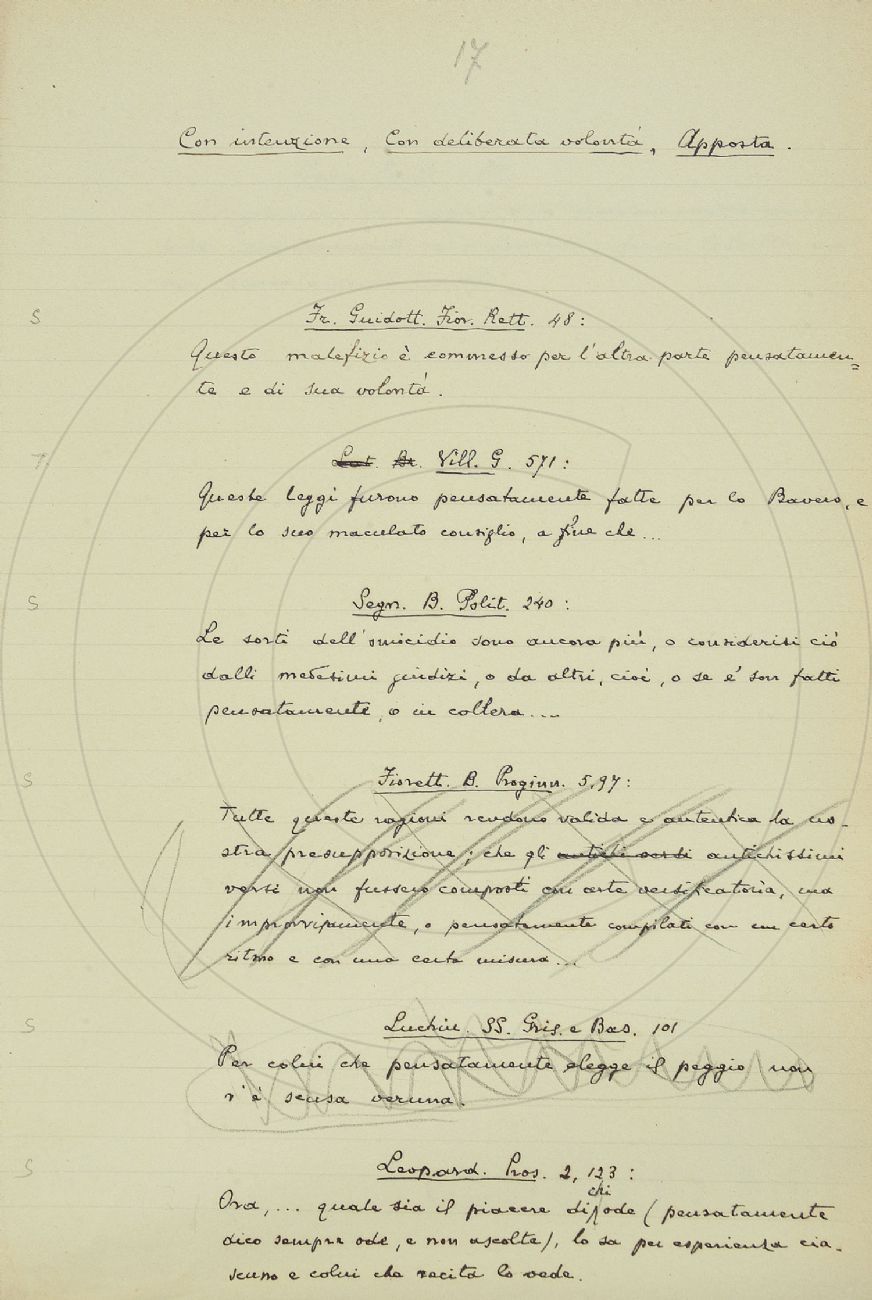 17
Con intenzione, Con deliberata volontà, Apposta.
S
Fr. Guidott. Fior. Rett. 48:
Questo malefizio è commesso per l'altra parte pensatamen=
te e di sua volontà.
T.
Vill. G. 571:
Queste leggi furono pensatamente fatte per lo Bavero, e
per lo suo maculato consiglio, a fine che...
S
Segn. B. Polit. 240:
Le sorti dell'omicidio sono ancora più, o considerisi ciò
dalli medesimi giudizi, o da altri, cioè, o se e' son fatti
pensatamente, o in collera....
S
Fiorett. B. Proginn. 5,97:
Tutte queste ragioni rendono valida e autentica la no-
stra presupposizione; che gli antichissimi
versi non fussero composti con arte versificatoria, ma
improvvisamente, o pensatamente compilati con un certo
ritmo e con una certa misura...
S
Luchin. SS. Gris. e Bas. 101
Per colui che pensatamente elegge il peggio non
v'è scusa veruna.
S
Leopard. Pros. 2, 123:
chi
Ora,... quale sia il piacere di ode (pensatamente
dico sempre ode, e non ascolta), lo sa per esperienza cia-
scuno e colui che recita lo vede.